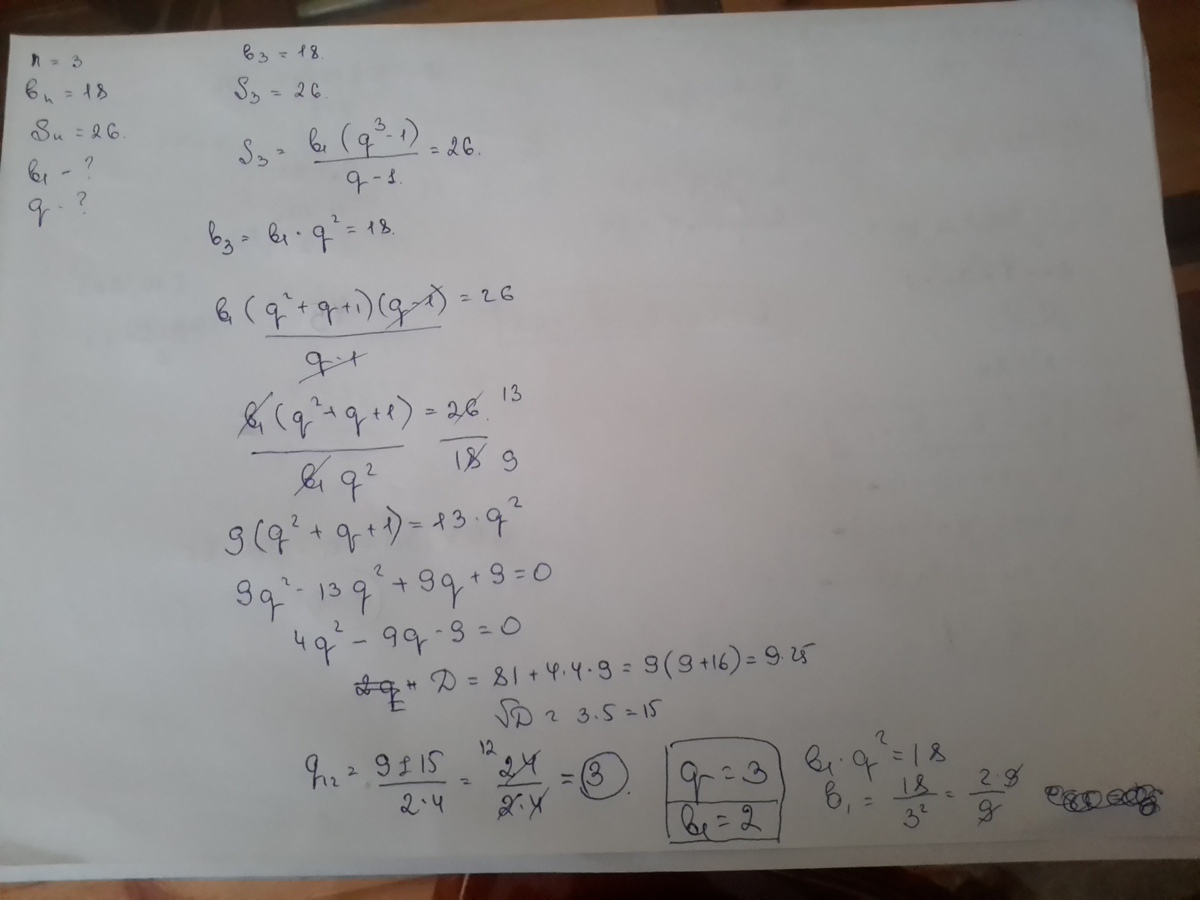 n = 3
bn = 18
Sn = 26.
b1 - ?
q - ?
b3 = 18.
S3 = 26.
S3 = b1 (q^3 - 1) / q - 1. = 26.
b3 = b1 · q^2 = 18.
b1 (q^2 + q + 1)(q - 1) / q - 1 = 26
b1 (q^2 + q + 1) / b1 q^2 = 26 13 / 18 9
9 (q^2 + q + 1) = 13 · q^2
9q^2 - 13q^2 + 9q + 9 = 0
4q^2 - 9q - 9 = 0
D = 81 + 4·4·9 = 9(9+16) = 9·25
√D = 3·5 = 15
q12 = 9 ± 15 / 2·4 = 12 24 / 2·4 = 3.
q = 3
b1 = 2
b1 · q^2 = 18
b1 = 18 / 3^2 = 2·9 / 9